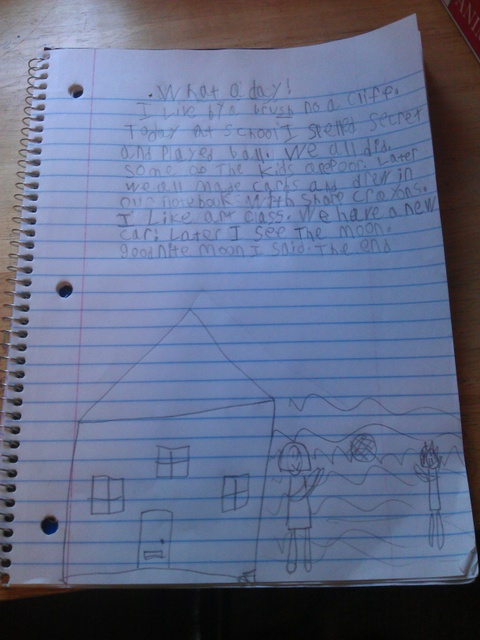 . What a day!
I Like by a brush no a cliffe.
Today at school I spelled secret
and played ball. We all did.
some of the kids Later
we all made cards and drew in
our notebook. With share crayons.
I Like art class. We have a new
car! Later I see The moon.
goodnite moon I said. The end